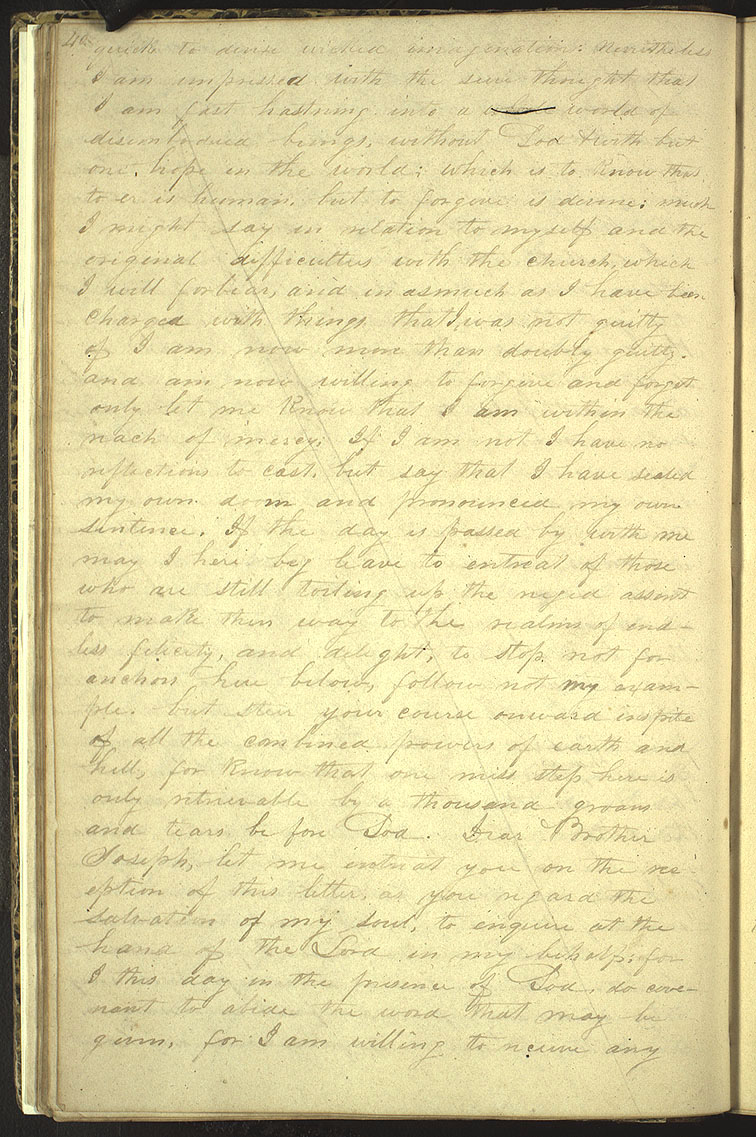 40
quick to devise wicked imagination: nevertheless
I am impressed with the sure thought that
I am fast hastning into a world of
disembodied beings, without God & with but
one hope in the world; which is to know that
to er is human, but to forgive is divine: much
I might say in relation to myself and the
original difficulties with the church, which
I will forbear, and inasmuch as I have been
charged with things that I was not guilty
of I am now more than doubly guilty.
and am now willing to forgive and forget
only let me know that I am within the
reach of mercy; If I am not I have no
reflections to cast, but say that I have sealed
my own doom and pronounced my own
sentence. If the day is passed by with me
may I here beg leave to entreat of those
who are still toiling up the ruged assent
to make their way to the realms of end-
less felicity, and delight, to stop not for
anchors here below, follow not my exam-
ple. but steer your course onward inspite
of all the combined powers of earth and
hell, for know that one miss step here is
only retrievable by a thousand groans
and tears before God. Dear Brother
Joseph, let me entreat you on the rec
eption of this letter, as you regard the
salvation of my soul, to enquire at the
hand of the Lord in my behalf; for
I this day in the presence of God, do cove-
nant to abide the word that may be
given, for I am willing to receive any